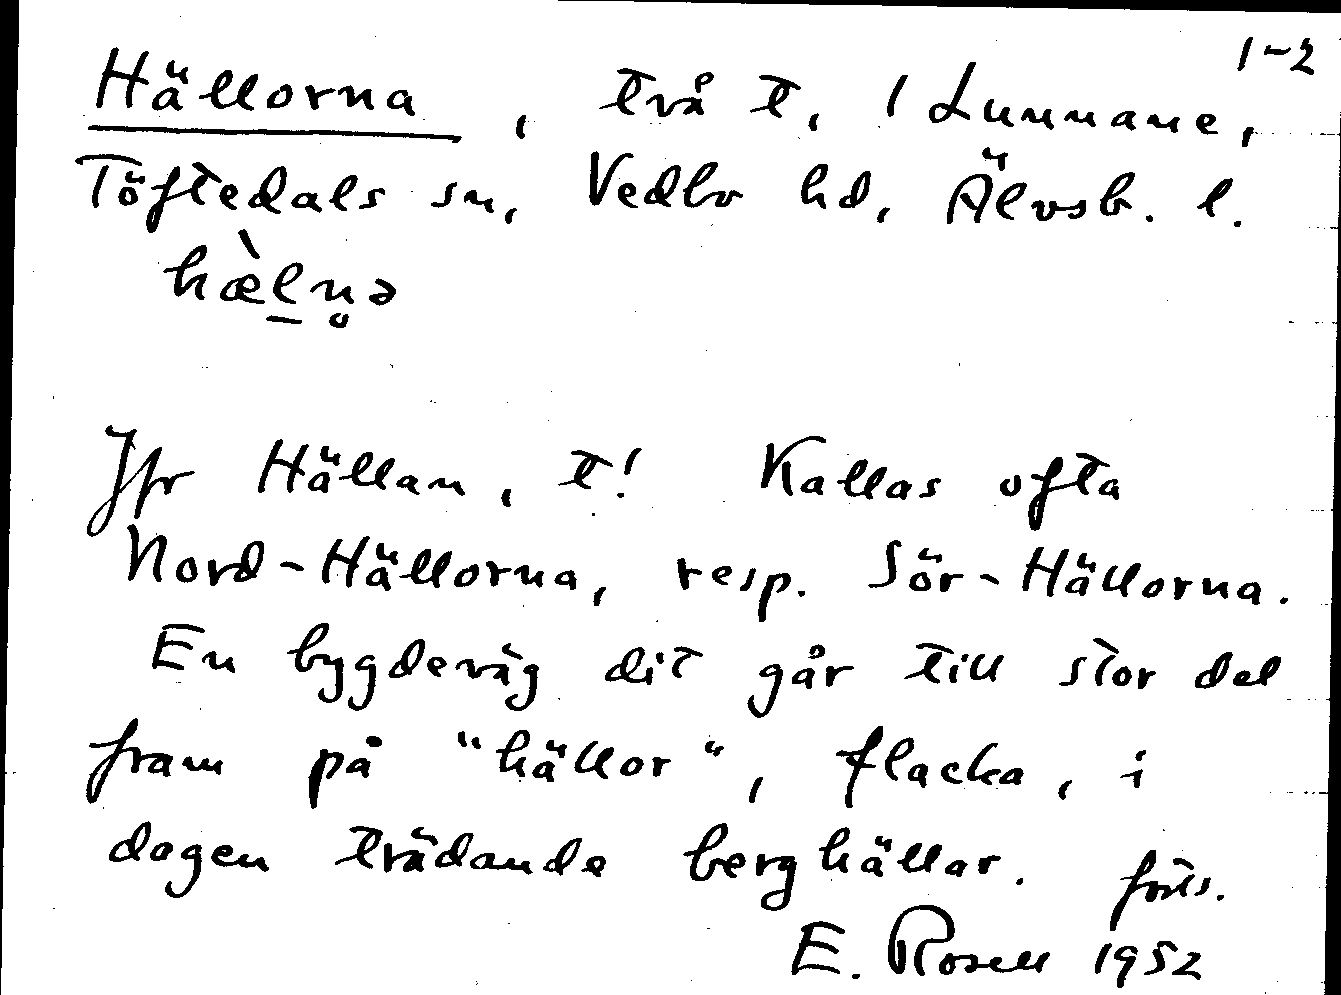 1-2
Hällorna, två t, / Lunnane,
Töftedals sn, Vedbo hd, Älvsb. l.
hæ̀l̠n̥ə
Jfr Hällan, t! Kallas ofta
Nord-Hällorna, resp. Sör-Hällorna.
En bygdeväg dit går till stor del
fram på "hällor", flacka, i
dagen trädande berghällar. forts.
E. Rosell 1952